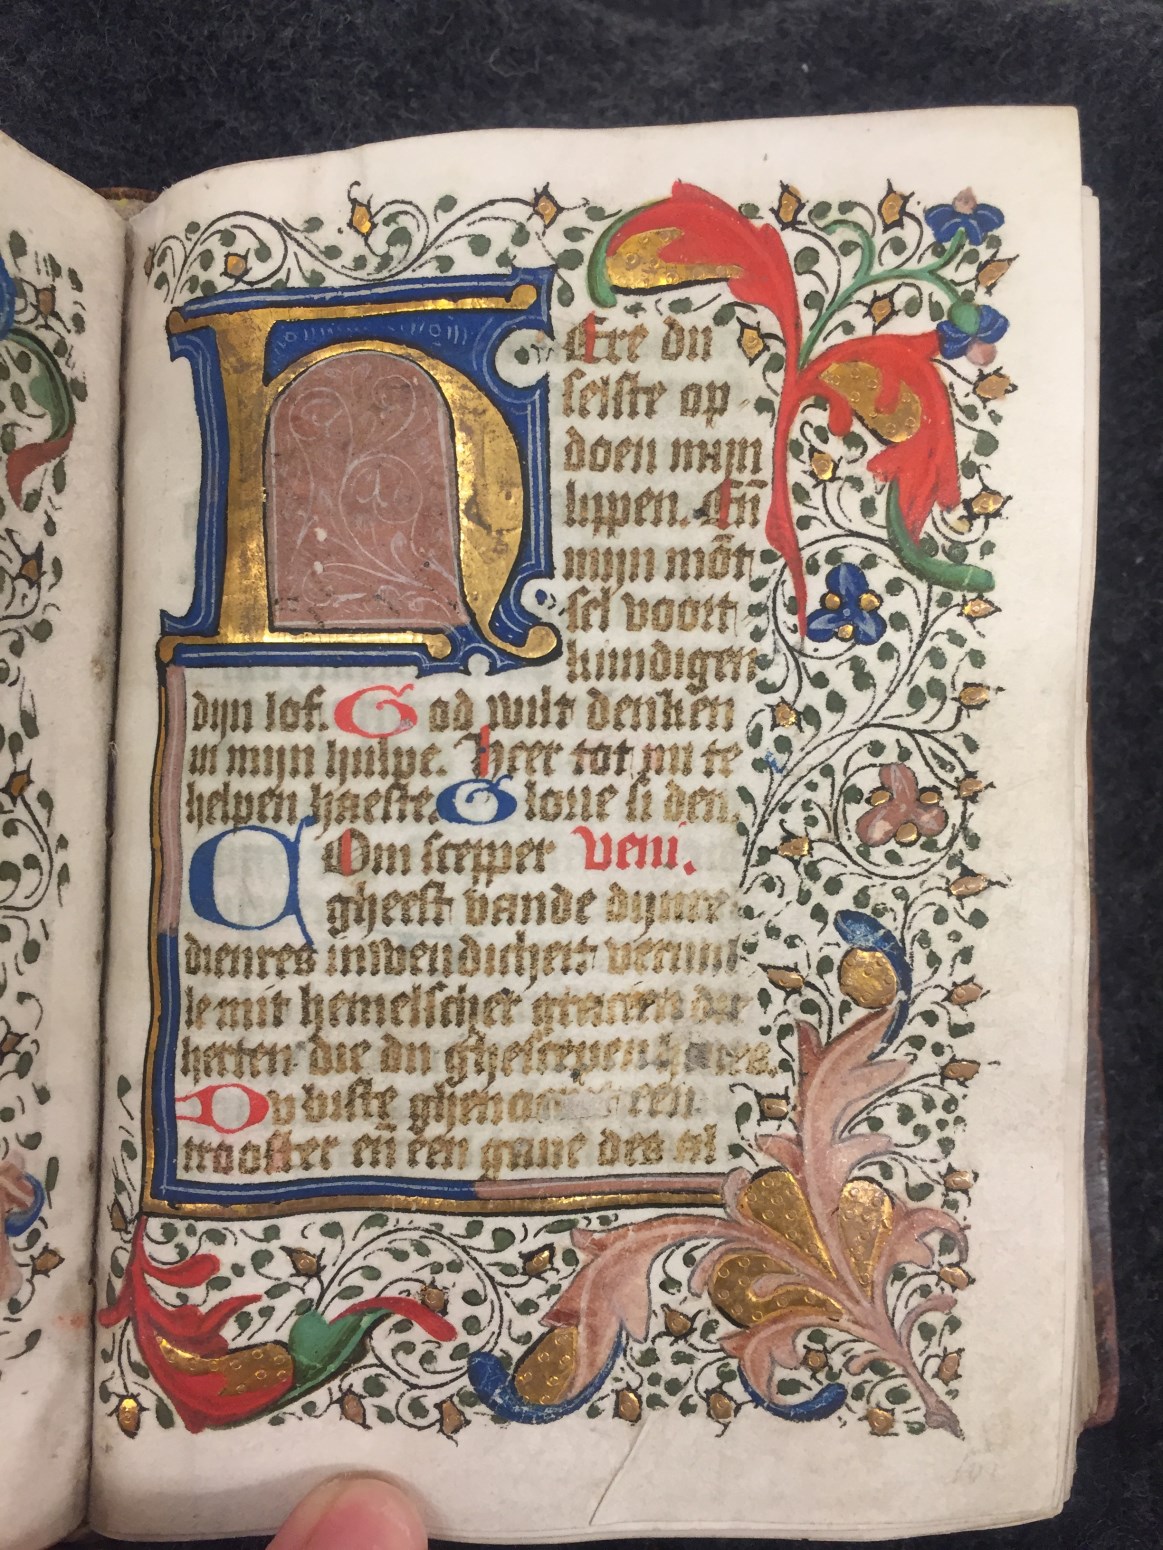 HEre du
selste op
doen mijn
lippen. Eñ
mijn mōt
sel voort
kundighen
dijn lof. God wilt denken
in mijn hulpe. Heer tot mi te
helpen haeste Glorie si den
COm scepper Veni.
gheest vande dijnre
dienres inwendicheit vervul
le mit hemelscher gracien die
herten die du ghescepen
Du biste ghenaemt een
trooster eñ een gaue des al